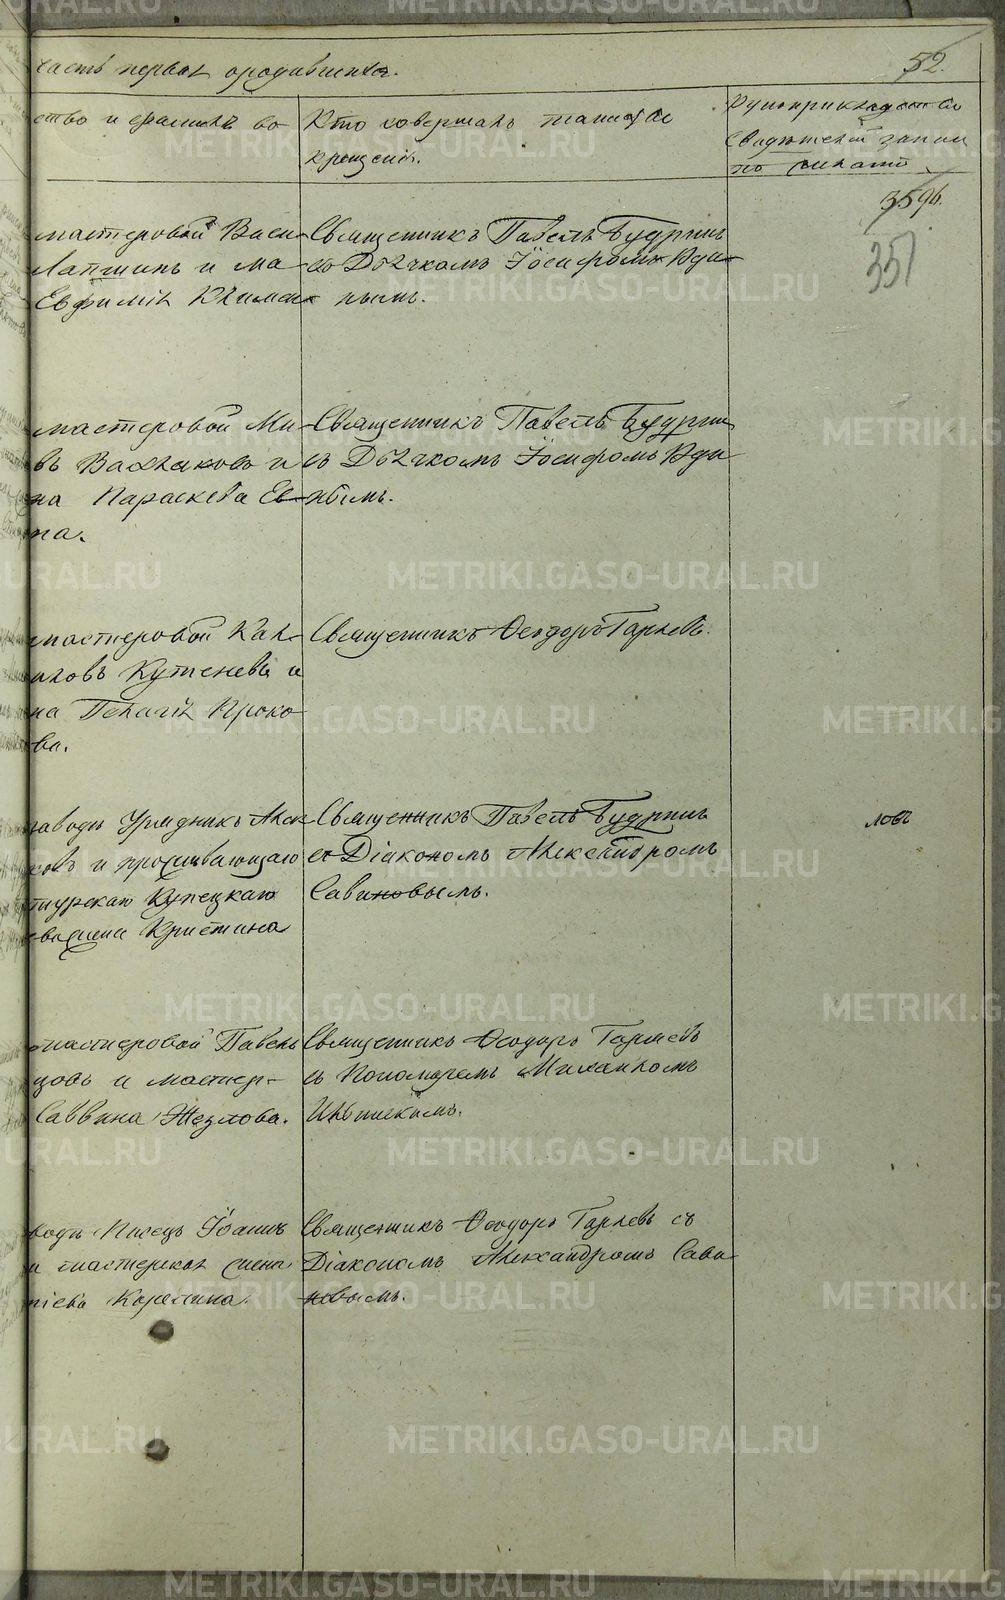 часть первая о родившихся.
52.
ство и фамилія во
Кто совершалъ таинство
крещенія.
Рукоприкладство
свидѣтелей записи
по желанію
359б.
351
мастеровой Васи-
Лапшинъ и ма-
Евфимія Климен-
Священникъ Павелъ Будринъ
съ Дьячкомъ Іосифомъ Яди-
нымъ.
мастеровой Ми-
въ Вахлаковъ и
на Параскева Ев-
на.
Священникъ Павелъ Будринъ
съ Дьячкомъ Іосифомъ Яди-
нымъ.
мастеровой Кал-
Кутеневъ и
на Пелагія Проко-
ва.
Священникъ Ѳеодоръ Гаряевъ.
завода Урядникъ Алек
ковъ и проживающаго
купецкаго
Кристина
Священникъ Павелъ Будринъ
съ Діакономъ Александромъ
Савиновымъ.
ловъ
мастеровой Павелъ
цовъ и мастер-
Саввина Жезлова.
Священникъ Ѳеодоръ Гаряевъ
съ Пономаремъ Михаиломъ
Ильинскимъ.
вода Писецъ Іоаннъ
и мастерская жена
Карелина.
Священникъ Ѳеодоръ Гаряевъ съ
Діакономъ Александромъ Сави-
новымъ.
METRIKI.GASO-URAL.RU